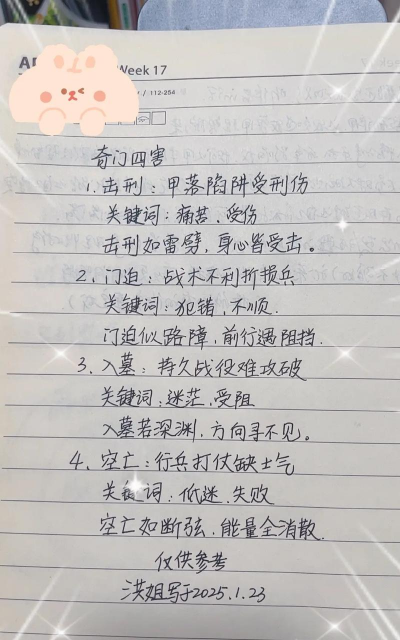 Week 17
/ 112-254
奇门四害
1、击刑：甲落陷阱受刑伤
关键词：痛苦、受伤
击刑如雷劈，身心皆受击。
2、门迫：战术不利折损兵
关键词：犯错，不顺.
门迫似路障，前行遇阻挡.
3、入墓：持久战役难攻破
关键词：迷茫、受阻
入墓若深渊，方向寻不见。
4、空亡：行兵打仗缺士气
关键词：低迷、失败
空亡如断弦，能量全消散.
仅供参考
洪姐写于2025.1.23